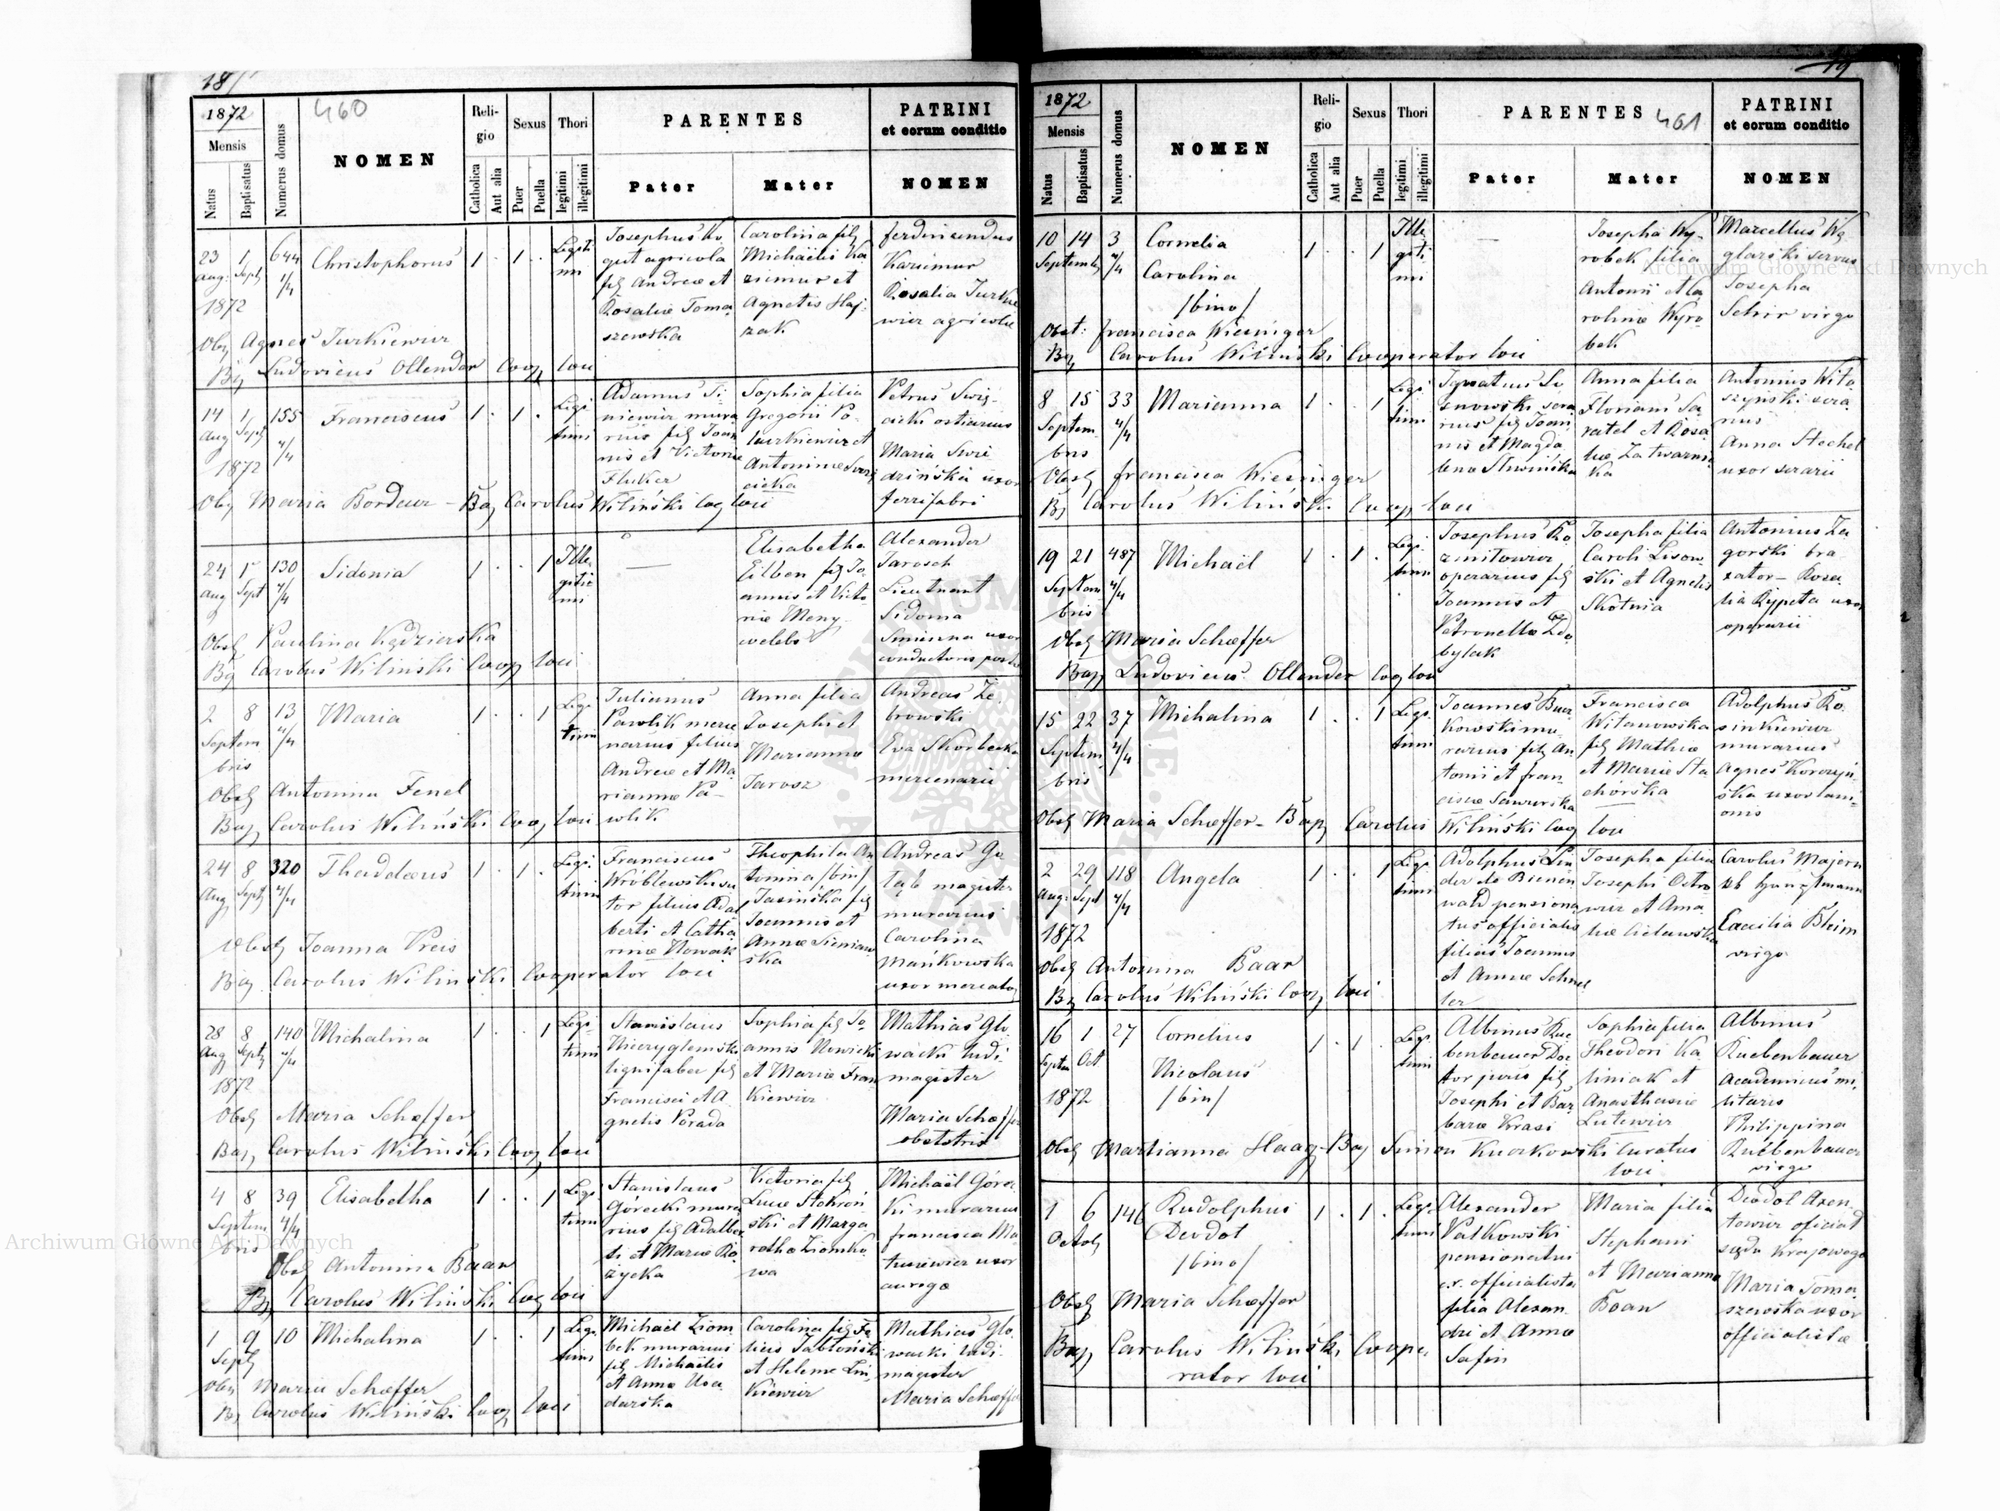 18/
1872
460
Mensis
Natus
Baptisatus
Numerus domus
NOMEN
Religio
Catholica
Aut alia
Sexus
Puer
Puella
Thori
legitimi
illegitimi
PARENTES
Pater
Mater
PATRINI
et eorum conditio
NOMEN
23 1 644
Aug. Sept 1/4
1872
Christophorus
1 . 1 .
Legiti
mi
Josephus Ko
gut agricola
filg Andreæ et
Rosaliæ Toma
szewska
Carolina filg
Michaëlis Ka
zimur et
Agnetis Haj
zak
Ferdinandus
Kazimur
Rosalia Turkie
wicz agricolæ
Obs Agnes Turkiewicz
Bg Ludovicus Ollender Coop loci
14 1 155
Aug Sept 4/4
1872
Franciscus
1 . 1 .
Legi
timi
Adamus Si
niewicz mura
rius filg Joan
nis et Victoriæ
Fluker
Sophia filia
Gregorii Po
Antoninæ
Petrus
ostiarius
Maria Swi
dzińska uxor
ferrifabri
Obs Maria Bordeur - Bap Carolus Wiliński Coop loci
24 1 130
Aug Sept 4/4
Sidonia
1 . . 1
Ille
gitti
mi
Elisabetha
Eilben filg Jo
annis et Victo
riæ Meny
Alexander
Jarosch
Lieutnant
Sidonia
uxor
conductoris
Obst Paulina Kędzierska
Bg Carolus Wilinski Coop loci
2 8 13
Septem 4/4
bris
Maria
1 . . 1
Legi
timi
Julianus
Pawlik merce
narius filius
Andreæ et Ma
riannæ Pa
wlik
Anna filia
Josephi et
Mariannæ
Jarosz
Andreas Ze
browski
Eva Skorbecka
mercenarii
Obst Antonina Fenel
Bap Carolus Wiliński Coop loci
24 8 320
Aug Sept 4/4
Thaddæus
1 . 1 .
Legi
timi
Franciscus
Wróblewski su
tor filius Adal
berti et Catha
rinæ Nowak
Theophila An
tonina /bin/
Jasińska filg
Joannis et
Annæ Sieniaw
ska
Andreas Go
łąb magister
murarius
Carolina
Mańkowska
uxor mercato
Obst Joanna Preis
Bap Carolus Wiliński Cooperator loci
28 8 140
Aug Sept 4/4
1872
Michalina
1 . . 1
Legi
timi
Stanislaus
Niczyglemski
lignifaber filg
Francisci et A
gnetis Porada
Sophia filg Jo
annis Nowicki
et Mariæ Fran
kiewicz
Mathias Glo
wacki ludi
magister
Maria Schæffer
obstetrix
Obst Maria Schæffer
Bap Carolus Wiliński Coop loci
4 8 39
Septem 4/4
bris
Elisabetha
1 . . 1
Legi
timi
Stanislaus
Górecki mura
rius filg Adalber
ti et Mariæ Ró
życka
Victoria filg
Lucæ Stokroń
ski et Marga
rethæ Ziomko
wa
Michaël Górec
ki murarius
Francisca Ma
tusiewicz uxor
aurigæ
Obst Antonina Baan
Bg Carolus Wiliński Coop loci
1 9 10
Sept
Michalina
1 . . 1
Legi
timi
Michaël Ziom
bek murarius
filg Michaëlis
et Annæ Usa
darska
Carolina filg Fe
licis Jabłoński
et Helenæ Lin
kiewicz
Mathias Glo
wacki ludi
magister
Maria Schæffer
Obs Maria Schæffer
Bg Carolus Wiliński Coop loci
19
1872
461
Mensis
Natus
Baptisatus
Numerus domus
NOMEN
Religio
Catholica
Aut alia
Sexus
Puer
Puella
Thori
legitimi
illegitimi
PARENTES
Pater
Mater
PATRINI
et eorum conditio
NOMEN
10 14 3
Septemb 4/4
Cornelia
Carolina
/bino/
1 . . 1
Ille
giti
mi
Josepha Wy
robek filia
Antonii et Ca
rolinæ Wyro
bek
Marcellus Wę
glarski servus
Josepha
Schir virgo
Obst: Francisca Wiesinger
Bg Carolus Wiliński Cooperator loci
8 15 33
Septem 4/4
bris
Marianna
1 . . 1
Legi
timi
Ignatius
rius filg Joan
nis et Magda
lenæ Sliwińska
Anna filia
Floriani Sa
ratel et Rosa
liæ Zatwarnic
ka
Antonius Wito
szyński
rius
Anna Stechel
uxor
Obst Francisca Wiesinger
Bg Carolus Wiliński Coop loci
19 21 487
Septem 4/4
bris
Michaël
1 . 1 .
Legi
timi
Josephus Ko
zmitowicz
operarius filg
Joannis et
Petronellæ Zdo
bylak
Josepha filia
Caroli Lisow
ski et Agnetis
Skotnia
Antonius Za
gorski bra
xator - Rosa
lia Rypeta uxor
operarii
Obst Maria Schæffer
Bap Ludovicus Ollender Coop loci
15 22 37
Septem 4/4
bris
Michalina
1 . . 1
Legi
timi
Joannes Bucz
kowski mu
rarius filg An
tonii et Fran
ciscæ
Francisca
Witanowska
filg Mathiæ
et Mariæ Sta
chorska
Adolphus Ro
sinkiewicz
murarius
Agnes
ska uxor lani
onis
Obst Maria Schæffer - Bap Carolus Wiliński Coop loci
2 29 118
Aug. Sept 4/4
1872
Angela
1 . . 1
Legi
timi
Adolphus Lin
der de Bienen
wald pensiona
tus officialis
filius Joannis
et Annæ Schnel
ler
Josepha filia
Josephi Ostro
wicz et Ama
liæ Cielawska
Carolus Majern
kk Hauptmann
Cæcilia Bleim
virgo
Obst Antonina Baan
Bg Carolus Wiliński Coop loci
16 1 27
Septem Oct
1872
Cornelius
Nicolaus
/bin/
1 . 1 .
Legi
timi
Albinus Rue
benbauer Doc
tor juris filg
Josephi et Bar
baræ Krasi
Sophia filia
Theodori Ka
liniak et
Anasthasiæ
Lutewicz
Albinus
Ruebenbauer
Academicus mi
litaris
Philippina
Ruebenbauer
virgo
Obst Martianna Haag - Bap Simon Kuczkowski Curatus
loci
1 6 146
Octob
Rudolphus
Deodat
/bino/
1 . 1 .
Legi
timi
Alexander
Patkowski
pensionatus
ex. officialista
filia Alexan
dri et Annæ
Safin
Maria filia
Stephani
et Mariannæ
Boan
Deodat Axen
towicz oficiał
sądu Krajowego
Maria Toma
szewska uxor
officialistæ
Obst Maria Schæffer
Bap Carolus Wiliński Coope
rator loci
Archiwum Główne Akt Dawnych
Archiwum Główne Akt Dawnych